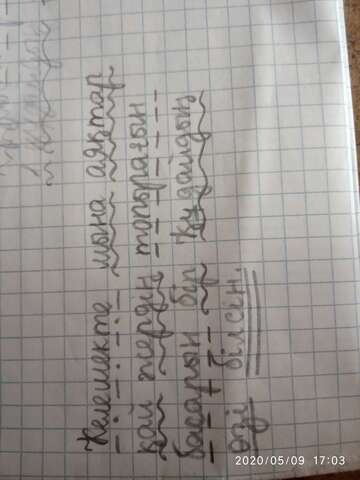 Келешекте мына аяқтар
қай жердің топырағын
басарын бір Құдайдың
өзі білсін.
2020/05/09 17:03